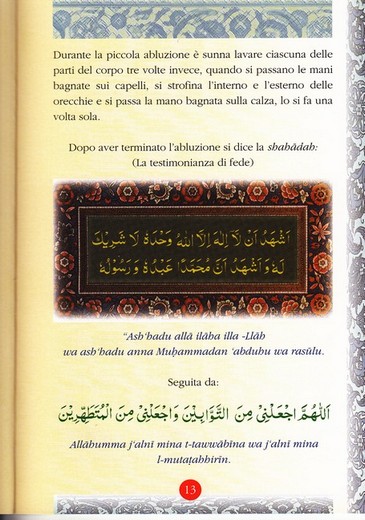 Durante la piccola abluzione è sunna lavare ciascuna delle
parti del corpo tre volte invece, quando si passano le mani
bagnate sui capelli, si strofina l'interno e l'esterno delle
orecchie e si passa la mano bagnata sulla calza, lo si fa una
volta sola.
Dopo aver terminato l'abluzione si dice la shahādah:
(La testimonianza di fede)
اَشْهَدُ اَنْ لَا اِلٰهَ اِلَّا اللهُ وَحْدَهُ لَا شَرِيْكَ
لَهُ وَاَشْهَدُ اَنَّ مُحَمَّدًا عَبْدُهُ وَرَسُوْلُهُ
"Ash'hadu allā ilāha illa -Llāh
wa ash'hadu anna Muḥammadan 'abduhu wa rasūlu.
Seguita da:
اَللّٰهُمَّ اجْعَلْنِيْ مِنَ التَّوَّابِيْنَ وَاجْعَلْنِيْ مِنَ الْمُتَطَهِّرِيْنَ
Allāhumma j'alnī mina t-tawwābīna wa j'alnī mina
l-mutaṭahhirīn.
13